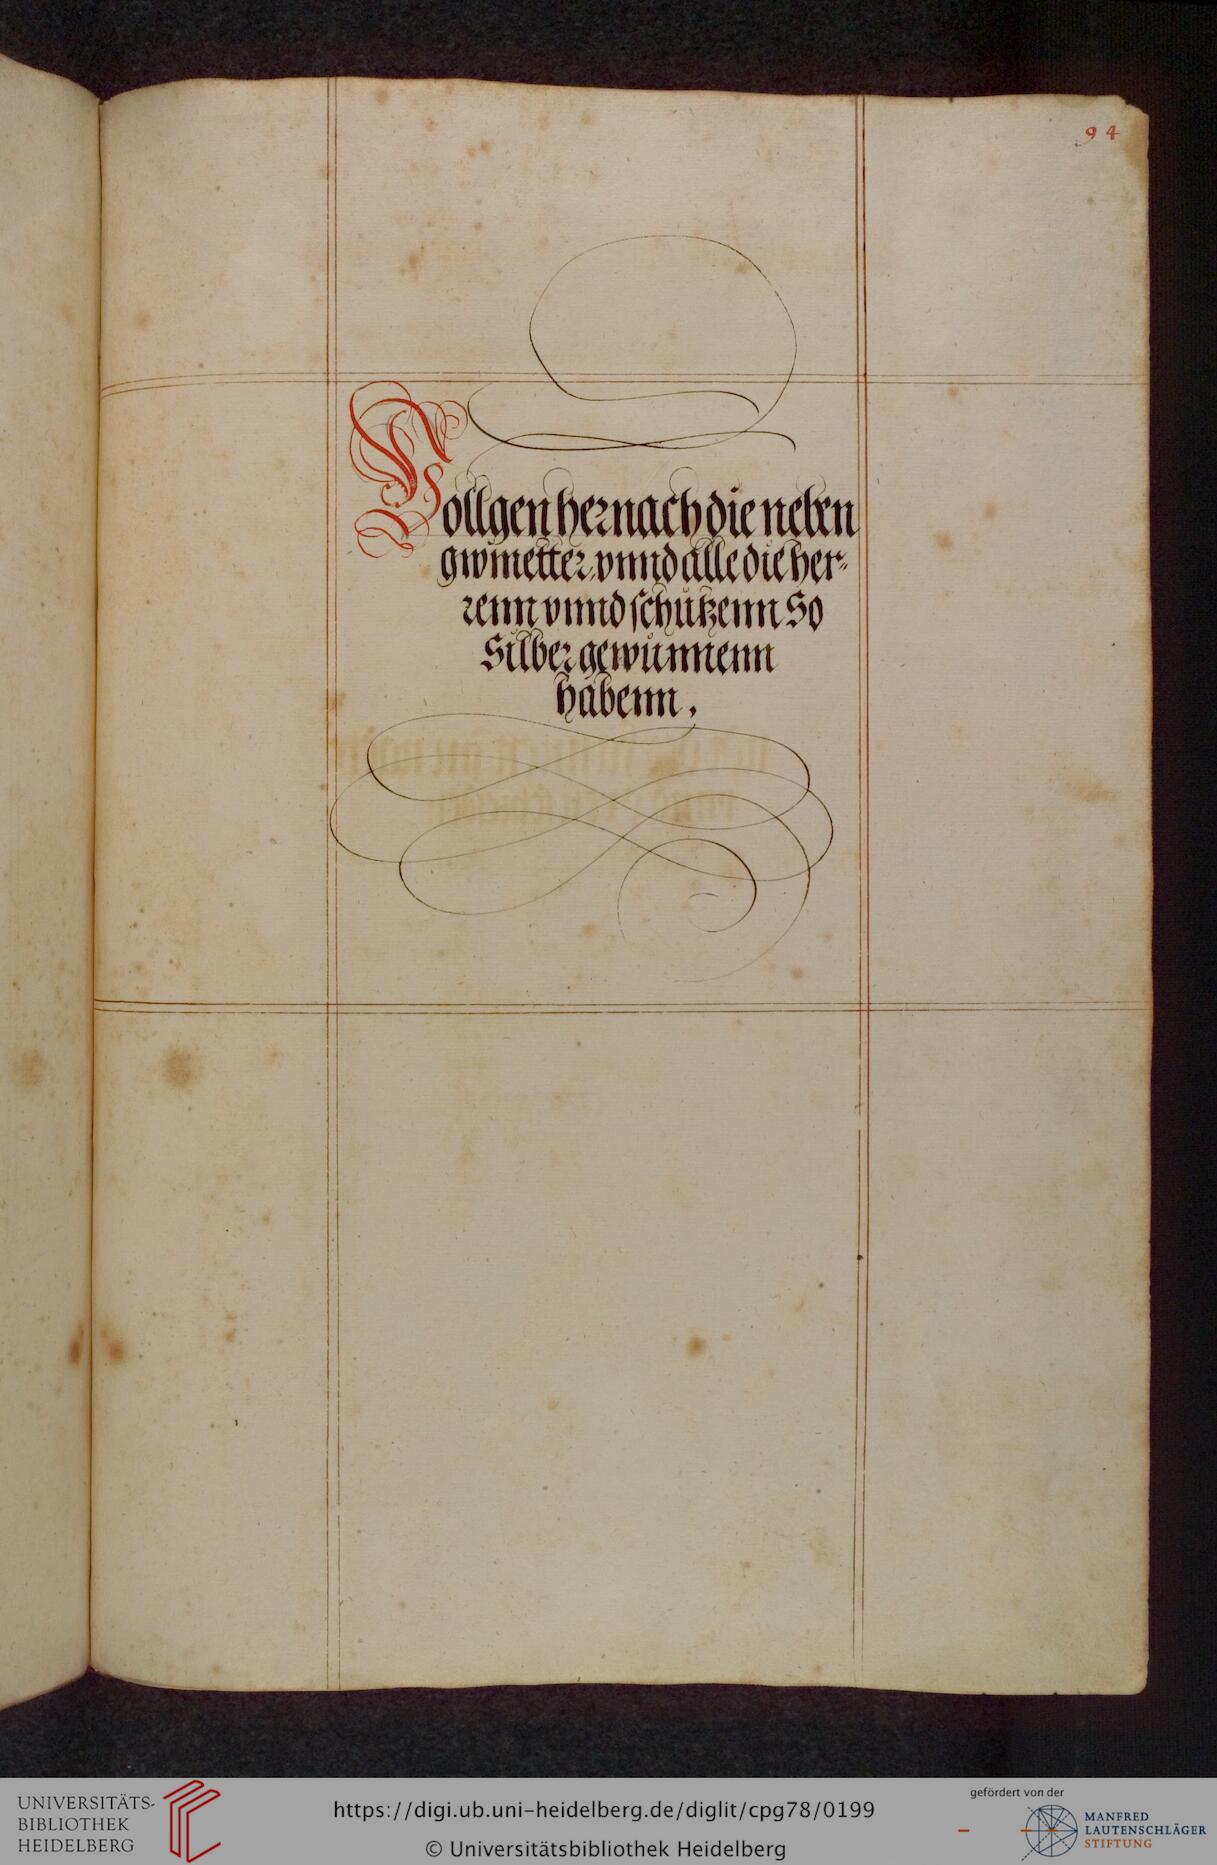 94
Vollgen hernach die neben
gwinetter, vnnd alle die her=
renn vnnd schützenn So
Silber gewunnenn
habenn,
UNIVERSITÄTS-
BIBLIOTHEK
HEIDELBERG
https://digi.ub.uni-heidelberg.de/diglit/cpg78/0199
© Universitätsbibliothek Heidelberg
gefördert von der
MANFRED
LAUTENSCHLÄGER
STIFTUNG